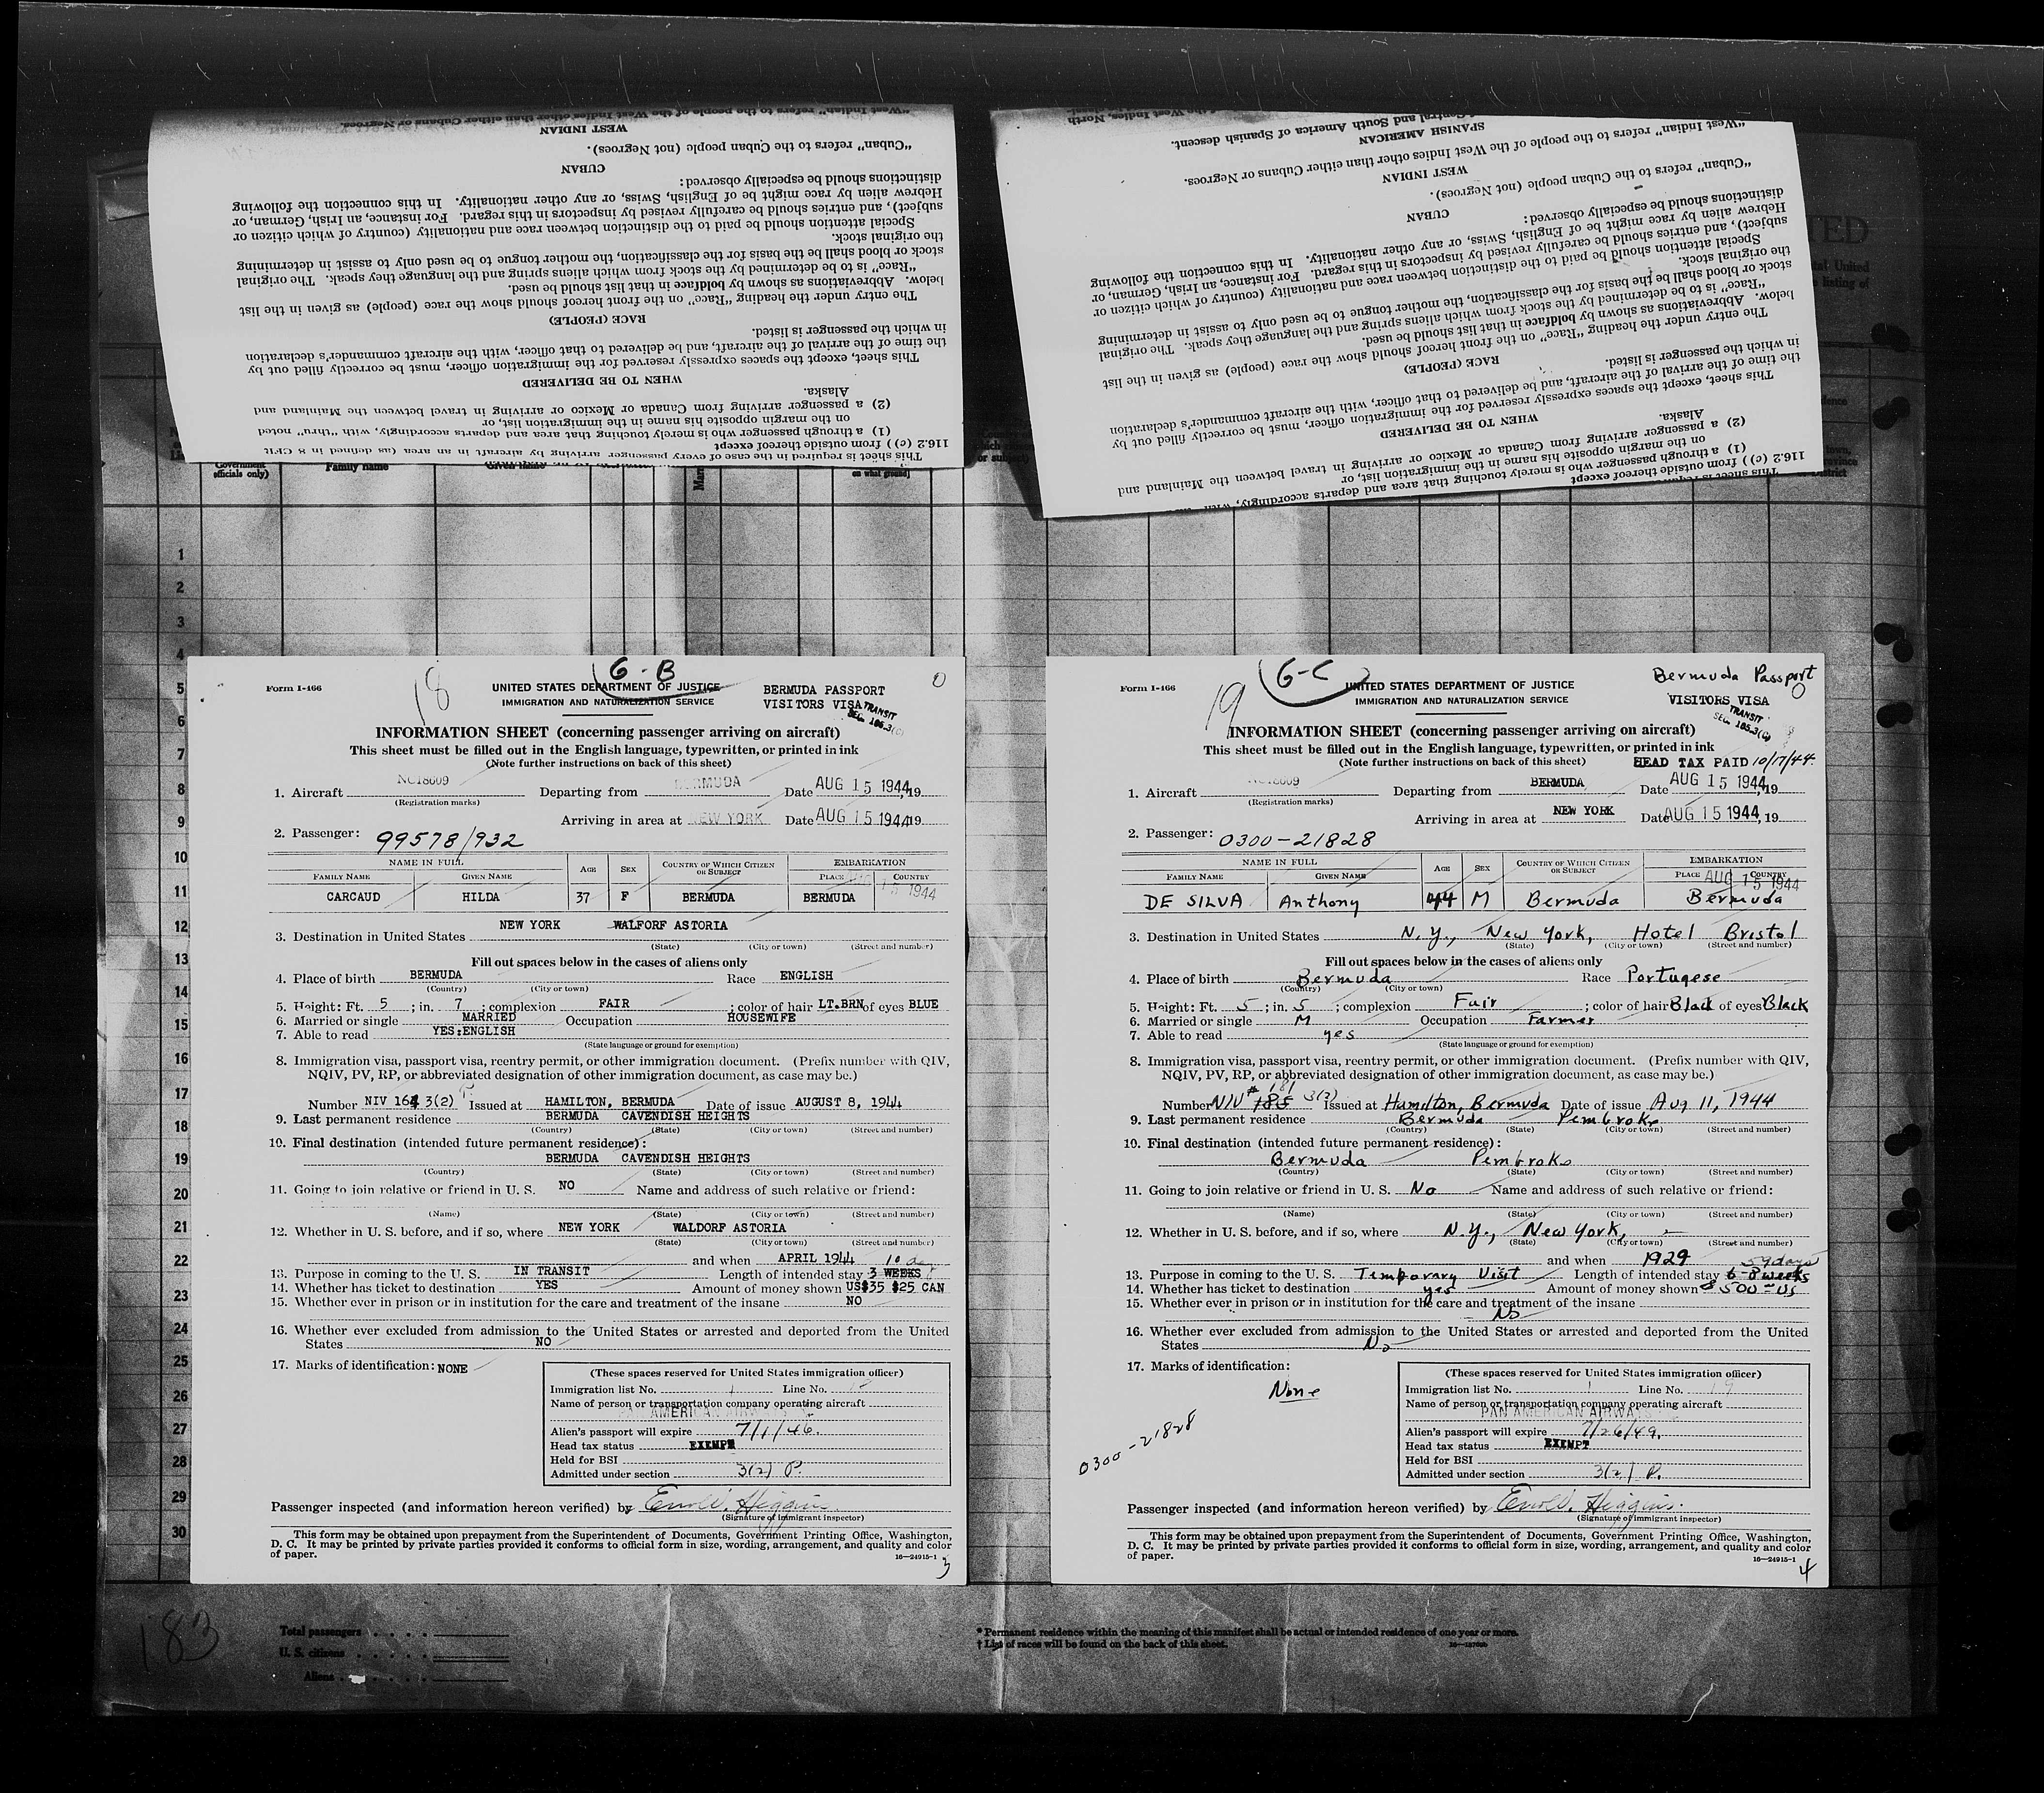 "West Indian" refers to the people of the West Indies other than either Cubans or Negroes.
WEST INDIAN
"Cuban" refers to the Cuban people (not Negroes).
CUBAN
distinctions should be especially observed:
Hebrew alien by race might be of English, Swiss, or any other nationality. In this connection the following
subject), and entries should be carefully revised by inspectors in this regard. For instance, an Irish, German, or
Special attention should be paid to the distinction between race and nationality (country of which citizen or
the original stock.
stock or blood shall be the basis for the classification, the mother tongue to be used only to assist in determining
"Race" is to be determined by the stock from which aliens spring and the language they speak. The original
below. Abbreviations as shown by boldface in that list should be used.
The entry under the heading "Race" on the front hereof should show the race (people) as given in the list
RACE (PEOPLE)
in which the passenger is listed.
the time of the arrival of the aircraft, and be delivered to that officer, with the aircraft commander's declaration
This sheet, except the spaces expressly reserved for the immigration officer, must be correctly filled out by
WHEN TO BE DELIVERED
Alaska.
(2) a passenger arriving from Canada or Mexico or arriving in travel between the Mainland and
on the margin opposite his name in the immigration list, or
(1) a through passenger who is merely touching that area and departs accordingly, with "thru" noted
116.2 (c)) from outside thereof except
This sheet is required in the case of every passenger arriving by aircraft in an area (as defined in 8 CFR
of Central and South America of Spanish descent.
SPANISH AMERICAN
"West Indian" refers to the people of the West Indies other than either Cubans or Negroes.
WEST INDIAN
"Cuban" refers to the Cuban people (not Negroes).
CUBAN
distinctions should be especially observed:
Hebrew alien by race might be of English, Swiss, or any other nationality. In this connection the following
subject), and entries should be carefully revised by inspectors in this regard. For instance, an Irish, German, or
Special attention should be paid to the distinction between race and nationality (country of which citizen or
the original stock.
stock or blood shall be the basis for the classification, the mother tongue to be used only to assist in determining
"Race" is to be determined by the stock from which aliens spring and the language they speak. The original
below. Abbreviations as shown by boldface in that list should be used.
The entry under the heading "Race" on the front hereof should show the race (people) as given in the list
RACE (PEOPLE)
in which the passenger is listed.
the time of the arrival of the aircraft, and be delivered to that officer, with the aircraft commander's declaration
This sheet, except the spaces expressly reserved for the immigration officer, must be correctly filled out by
WHEN TO BE DELIVERED
Alaska.
(2) a passenger arriving from Canada or Mexico or arriving in travel between the Mainland and
on the margin opposite his name in the immigration list, or
(1) a through passenger who is merely touching that area and departs accordingly, with
116.2 (c)) from outside thereof except
Government officials only) Family name Given name on what ground)
1
2
3
4
5
6
7
8
9
10
11
12
13
14
15
16
17
18
19
20
21
22
23
24
25
26
27
28
29
30
18 G-B 0
Form I-466 UNITED STATES DEPARTMENT OF JUSTICE BERMUDA PASSPORT
IMMIGRATION AND NATURALIZATION SERVICE VISITORS VISA TRANSIT SEC. 165.3(c)
INFORMATION SHEET (concerning passenger arriving on aircraft)
This sheet must be filled out in the English language, typewritten, or printed in ink
(Note further instructions on back of this sheet)
1. Aircraft NC18609 Departing from BERMUDA Date AUG 15 1944, 19
(Registration marks)
Arriving in area at NEW YORK Date AUG 15 1944 19
2. Passenger: 99578/932
NAME IN FULL AGE SEX COUNTRY OF WHICH CITIZEN OR SUBJECT EMBARKATION
FAMILY NAME GIVEN NAME PLACE COUNTRY
CARCAUD HILDA 37 F BERMUDA BERMUDA AUG 15 1944
NEW YORK WALFORF ASTORIA
3. Destination in United States
(State) (City or town) (Street and number)
Fill out spaces below in the cases of aliens only
4. Place of birth BERMUDA Race ENGLISH
(Country) (City or town)
5. Height: Ft. 5 ; in. 7 ; complexion FAIR ; color of hair LT.BRN of eyes BLUE
6. Married or single MARRIED Occupation HOUSEWIFE
7. Able to read YES:ENGLISH
(State language or ground for exemption)
8. Immigration visa, passport visa, reentry permit, or other immigration document. (Prefix number with QIV,
NQIV, PV, RP, or abbreviated designation of other immigration document, as case may be.)
Number NIV 164 3(2) Issued at HAMILTON, BERMUDA Date of issue AUGUST 8, 1944
9. Last permanent residence BERMUDA CAVENDISH HEIGHTS
(Country) (State) (City or town) (Street and number)
10. Final destination (intended future permanent residence):
BERMUDA CAVENDISH HEIGHTS
(Country) (State) (City or town) (Street and number)
11. Going to join relative or friend in U. S. NO Name and address of such relative or friend:
(Name) (State) (City or town) (Street and number)
12. Whether in U. S. before, and if so, where NEW YORK WALDORF ASTORIA
(State) (City or town) (Street and number)
and when APRIL 1944 10 da
13. Purpose in coming to the U. S. IN TRANSIT Length of intended stay 3 WEEKS
14. Whether has ticket to destination YES Amount of money shown US$35 $25 CAN
15. Whether ever in prison or in institution for the care and treatment of the insane NO
16. Whether ever excluded from admission to the United States or arrested and deported from the United
States NO
17. Marks of identification: NONE
(These spaces reserved for United States immigration officer)
Immigration list No. 1 Line No.
Name of person or transportation company operating aircraft
PAN AMERICAN AIRWAYS
Alien's passport will expire 7/1/46.
Head tax status EXEMPT
Held for BSI
Admitted under section 3(2) P.
Passenger inspected (and information hereon verified) by Errol. Higgins
(Signature of immigrant inspector)
This form may be obtained upon prepayment from the Superintendent of Documents, Government Printing Office, Washington,
D. C. It may be printed by private parties provided it conforms to official form in size, wording, arrangement, and quality and color
of paper. 16—24915-1
3
19 G-C Bermuda Passport 0
Form I-466 UNITED STATES DEPARTMENT OF JUSTICE
IMMIGRATION AND NATURALIZATION SERVICE VISITORS VISA TRANSIT SEC. 165.3(c)
INFORMATION SHEET (concerning passenger arriving on aircraft)
This sheet must be filled out in the English language, typewritten, or printed in ink
(Note further instructions on back of this sheet) HEAD TAX PAID 10/17/44.
1. Aircraft NC18609 Departing from BERMUDA Date AUG 15 1944, 19
(Registration marks)
Arriving in area at NEW YORK Date AUG 15 1944, 19
2. Passenger: 0300-21828
NAME IN FULL AGE SEX COUNTRY OF WHICH CITIZEN OR SUBJECT EMBARKATION
FAMILY NAME GIVEN NAME PLACE COUNTRY AUG 15 1944
DE SILVA Anthony 44 M Bermuda Bermuda
3. Destination in United States N.Y., New York, Hotel Bristol
(State) (City or town) (Street and number)
Fill out spaces below in the cases of aliens only
4. Place of birth Bermuda Race Portugese
(Country) (City or town)
5. Height: Ft. 5 ; in. 5 ; complexion Fair ; color of hair Black of eyes Black
6. Married or single M Occupation Farmer
7. Able to read yes
(State language or ground for exemption)
8. Immigration visa, passport visa, reentry permit, or other immigration document. (Prefix number with QIV,
NQIV, PV, RP, or abbreviated designation of other immigration document, as case may be.)
181
Number NIV # 185 3(2) Issued at Hamilton, Bermuda Date of issue Aug 11, 1944
9. Last permanent residence Bermuda Pembroke
(Country) (State) (City or town) (Street and number)
10. Final destination (intended future permanent residence):
Bermuda Pembroke
(Country) (State) (City or town) (Street and number)
11. Going to join relative or friend in U. S. No Name and address of such relative or friend:
(Name) (State) (City or town) (Street and number)
12. Whether in U. S. before, and if so, where N.Y., New York,
(State) (City or town) (Street and number)
and when 1929 59 days
13. Purpose in coming to the U. S. Temporary Visit Length of intended stay 6-8 weeks
14. Whether has ticket to destination yes Amount of money shown $500 - US
15. Whether ever in prison or in institution for the care and treatment of the insane
No
16. Whether ever excluded from admission to the United States or arrested and deported from the United
States No
17. Marks of identification:
None
0300-21828
(These spaces reserved for United States immigration officer)
Immigration list No. 1 Line No. 19
Name of person or transportation company operating aircraft
PAN AMERICAN AIRWAYS
Alien's passport will expire 7/26/49.
Head tax status EXEMPT
Held for BSI
Admitted under section 3(2) P.
Passenger inspected (and information hereon verified) by Errol. Higgins.
(Signature of immigrant inspector)
This form may be obtained upon prepayment from the Superintendent of Documents, Government Printing Office, Washington,
D. C. It may be printed by private parties provided it conforms to official form in size, wording, arrangement, and quality and color
of paper. 16—24915-1
4
183
Total passengers
U. S. citizens
Aliens
* Permanent residence within the meaning of this manifest shall be actual or intended residence of one year or more.
† List of races will be found on the back of this sheet.